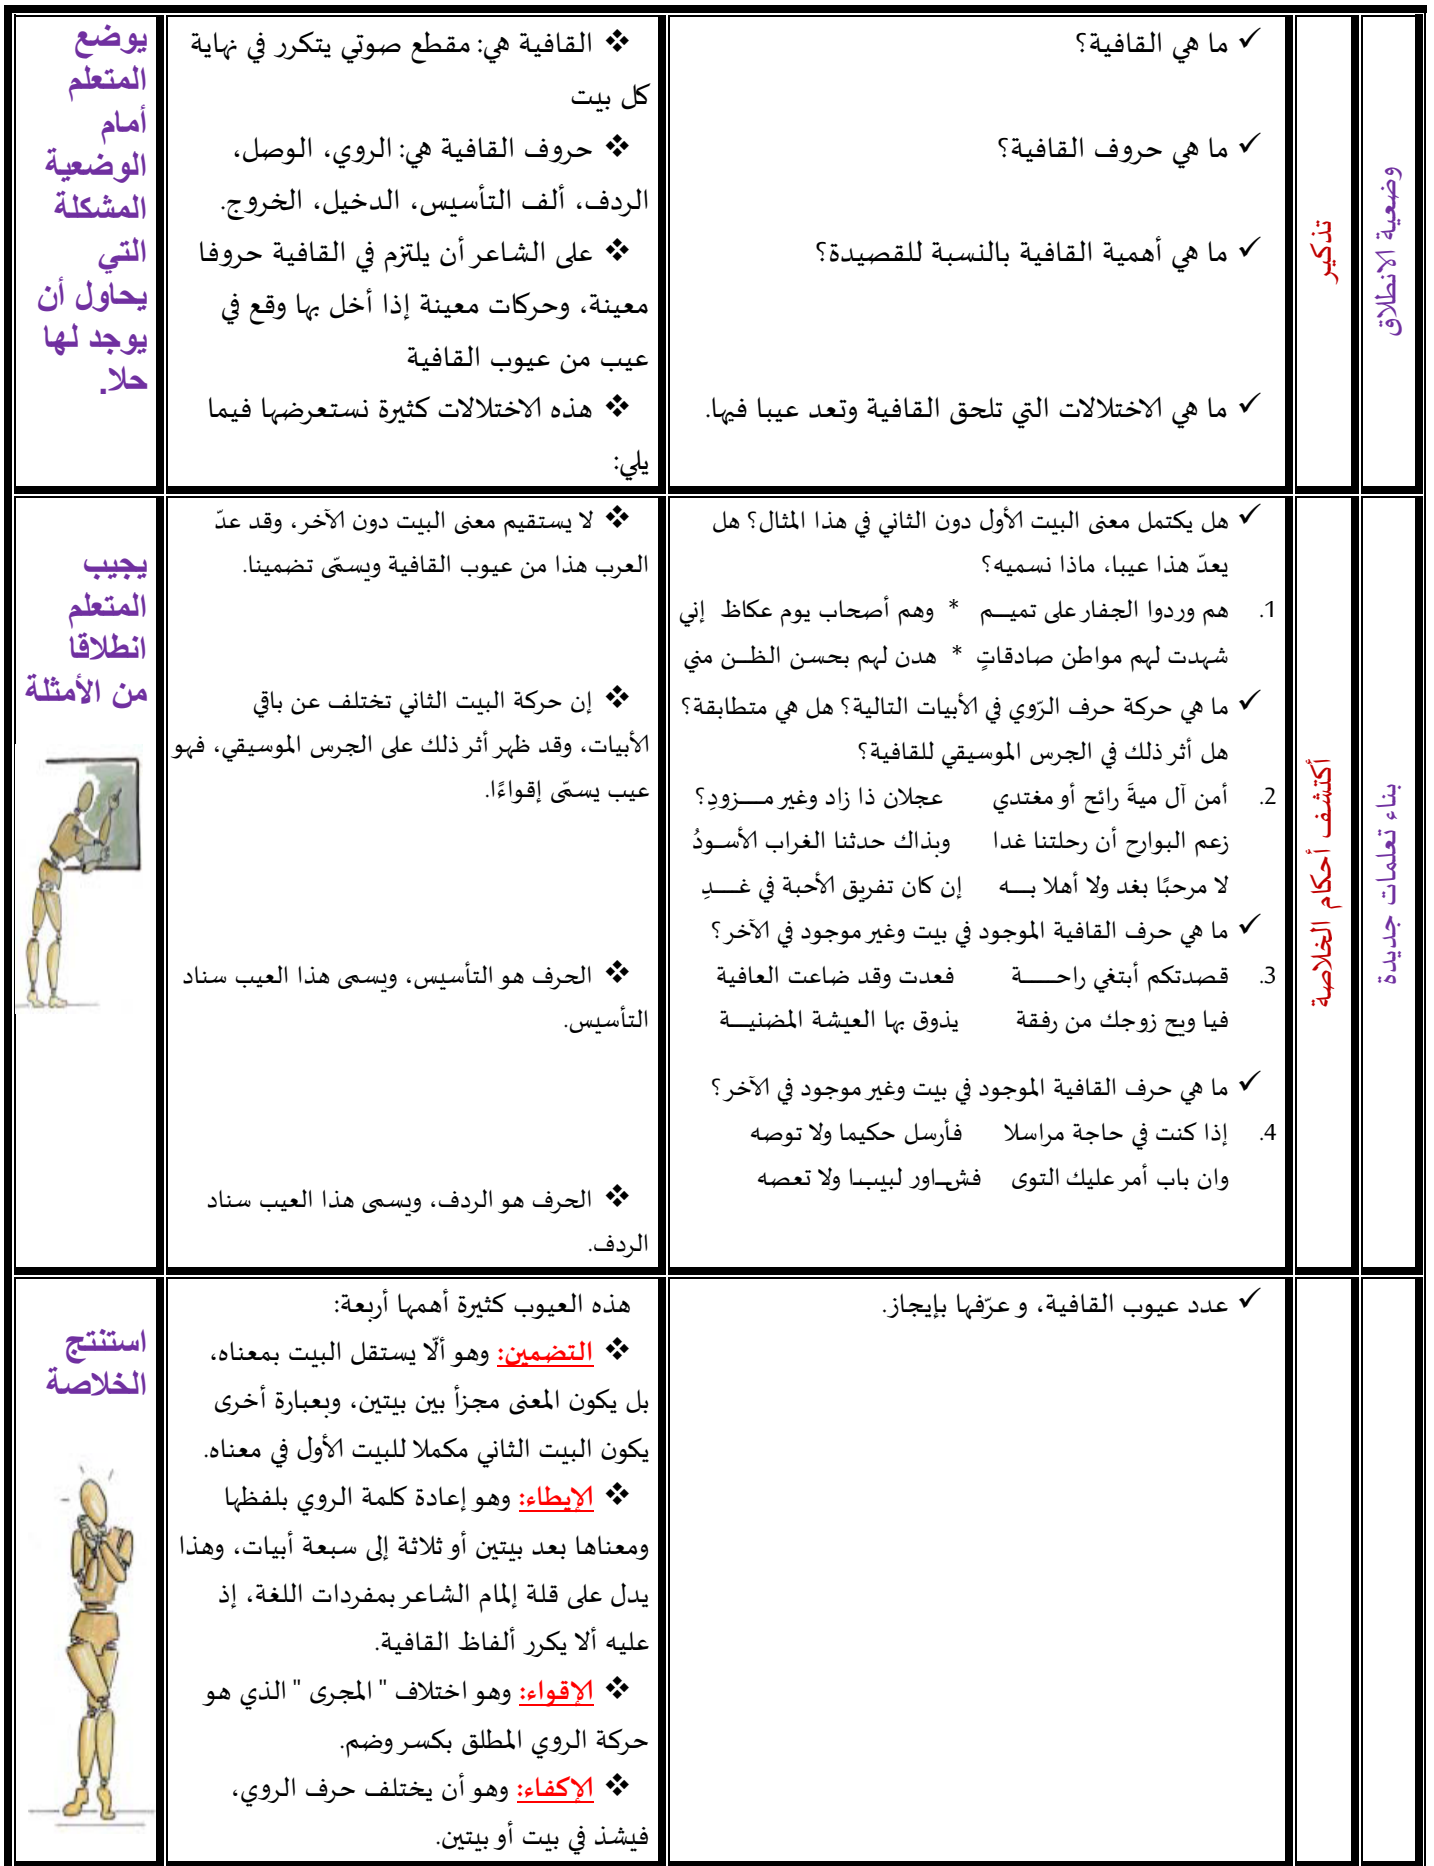 وضعية الانطلاق
تذكير
✓ ما هي القافية؟
✓ ما هي حروف القافية؟
✓ ما هي أهمية القافية بالنسبة للقصيدة؟
✓ ما هي الاختلالات التي تلحق القافية وتعد عيبا فيها.
❖ القافية هي: مقطع صوتي يتكرر في نهاية
كل بيت
❖ حروف القافية هي: الروي، الوصل،
الردف، ألف التأسيس، الدخيل، الخروج.
❖ على الشاعر أن يلتزم في القافية حروفا
معينة، وحركات معينة إذا أخل بها وقع في
عيب من عيوب القافية
❖ هذه الاختلالات كثيرة نستعرضها فيما
يلي:
يوضع
المتعلم
أمام
الوضعية
المشكلة
التي
يحاول أن
يوجد لها
حلا.
بناء تعلمات جديدة
أكتشف أحكام الخلاصة
✓ هل يكتمل معنى البيت الأول دون الثاني في هذا المثال؟ هل
يعدّ هذا عيبا، ماذا نسميه؟
1. هم وردوا الجفار على تميــم * وهم أصحاب يوم عكاظ إني
شهدت لهم مواطن صادقاتٍ * هدن لهم بحسن الظــن مني
✓ ما هي حركة حرف الرّوي في الأبيات التالية؟ هل هي متطابقة؟
هل أثر ذلك في الجرس الموسيقي للقافية؟
2. أمن آل ميةَ رائح أو مغتدي عجلان ذا زاد وغير مــزودِ؟
زعم البوارح أن رحلتنا غدا وبذاك حدثنا الغراب الأسـودُ
لا مرحبًا بغد ولا أهلا بــه إن كان تفريق الأحبة في غــدِ
✓ ما هي حرف القافية الموجود في بيت وغير موجود في الآخر؟
3. قصدتكم أبتغي راحـــة فعدت وقد ضاعت العافية
فيا ويح زوجك من رفقة يذوق بها العيشة المضنيــة
✓ ما هي حرف القافية الموجود في بيت وغير موجود في الآخر؟
4. إذا كنت في حاجة مراسلا فأرسل حكيما ولا توصه
وان باب أمر عليك التوى فشـاور لبيبـا ولا تعصه
❖ لا يستقيم معنى البيت دون الآخر، وقد عدّ
العرب هذا من عيوب القافية ويسمّى تضمينا.
❖ إن حركة البيت الثاني تختلف عن باقي
الأبيات، وقد ظهر أثر ذلك على الجرس الموسيقي، فهو
عيب يسمّى إقواءًا.
❖ الحرف هو التأسيس، ويسمى هذا العيب سناد
التأسيس.
❖ الحرف هو الردف، ويسمى هذا العيب سناد
الردف.
يجيب
المتعلم
انطلاقا
من الأمثلة
✓ عدد عيوب القافية، و عرّفها بإيجاز.
هذه العيوب كثيرة أهمها أربعة:
❖ التضمين: وهو ألّا يستقل البيت بمعناه،
بل يكون المعنى مجزأ بين بيتين، وبعبارة أخرى
يكون البيت الثاني مكملا للبيت الأول في معناه.
❖ الإيطاء: وهو إعادة كلمة الروي بلفظها
ومعناها بعد بيتين أو ثلاثة إلى سبعة أبيات، وهذا
يدل على قلة إلمام الشاعر بمفردات اللغة، إذ
عليه ألا يكرر ألفاظ القافية.
❖ الإقواء: وهو اختلاف " المجرى " الذي هو
حركة الروي المطلق بكسر وضم.
❖ الإكفاء: وهو أن يختلف حرف الروي،
فيشذ في بيت أو بيتين.
استنتج
الخلاصة